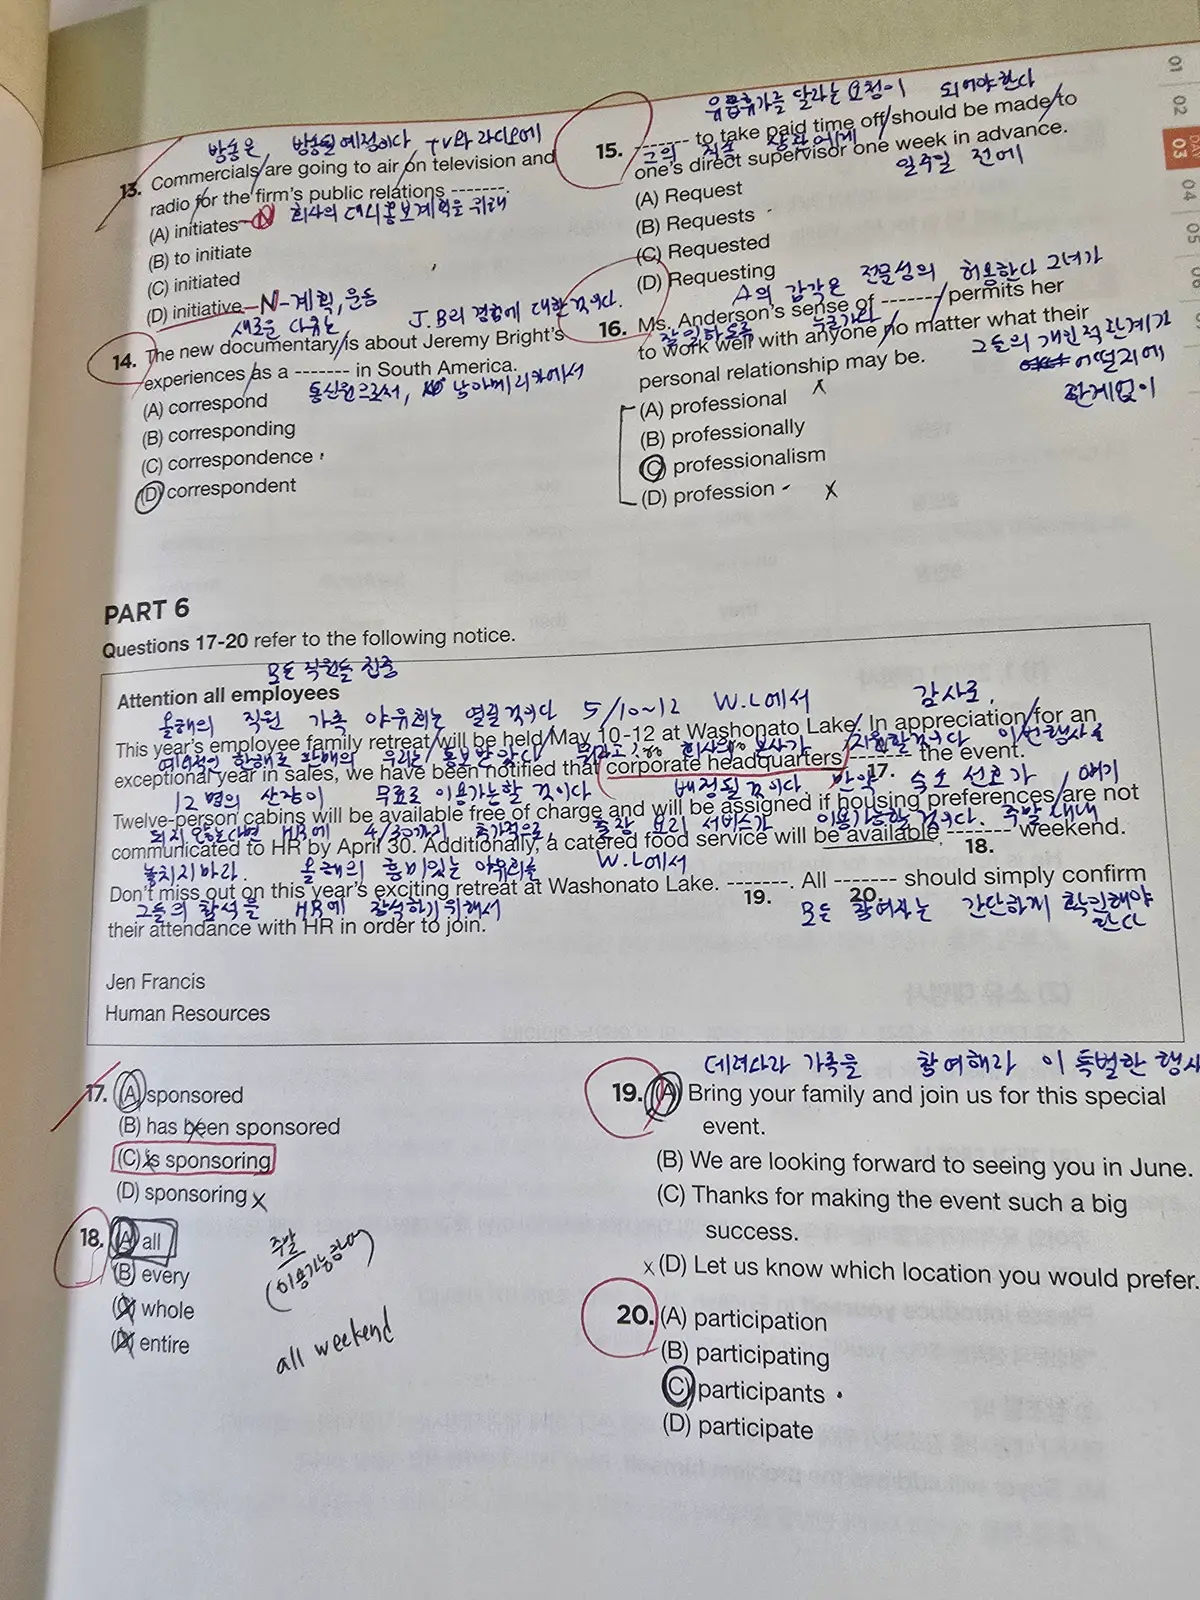 01
02
DAY 03
04
05
06
방송은 방송될 예정이다 TV와 라디오에
13. Commercials are going to air on television and
radio for the firm's public relations -------.
회사의 대외홍보계획을 위해
(A) initiates N
(B) to initiate
(C) initiated
(D) initiative N-계획, 운동
새로운 다큐는 J.B의 경험에 대한 것이다.
14. The new documentary is about Jeremy Bright's
experiences as a ------- in South America.
통신원으로서, 남아메리카에서
(A) correspond
(B) corresponding
(C) correspondence
(D) correspondent
유급휴가를 달라는 요청이 되어야한다
15. ------- to take paid time off should be made to
그의 직속 상관에게
one's direct supervisor one week in advance.
일주일 전에
(A) Request
(B) Requests
(C) Requested
(D) Requesting
A의 감각은 전문성의 허용한다 그녀가
16. Ms. Anderson's sense of ------- permits her
잘 일하도록 누군가와
to work well with anyone no matter what their
그들의 개인적 관계가
personal relationship may be.
어떨지에
관계없이
(A) professional x
(B) professionally
(C) professionalism
(D) profession x
PART 6
Questions 17-20 refer to the following notice.
모든 직원들 집중
Attention all employees
올해의 직원 가족 야유회는 열릴것이다 5/10~12 W.L에서 감사로,
This year's employee family retreat will be held May 10-12 at Washonato Lake. In appreciation for an
예외적인 한해로 판매의 우리는 통보받았다 회사의 본사가 지원할것이다 이번행사를
exceptional year in sales, we have been notified that corporate headquarters ------- the event.
17.
12명의 산장이 무료로 이용가능할 것이다 배정될 것이다. 만약 숙소 선호가 얘기
Twelve-person cabins will be available free of charge and will be assigned if housing preferences are not
되지 않는다면 HR에 4/30까지 추가적으로 출장 요리 서비스가 이용가능할것이다. 주말 내내
communicated to HR by April 30. Additionally, a catered food service will be available ------- weekend.
18.
놓치지바라. 올해의 흥미있는 야유회를 W.L에서
Don't miss out on this year's exciting retreat at Washonato Lake. -------. All ------- should simply confirm
19. 20.
그들의 참석을 HR에 참석하기위해서 모든 참여자는 간단하게 확인해야
한다
their attendance with HR in order to join.
Jen Francis
Human Resources
17. (A) sponsored
(B) has been sponsored
(C) is sponsoring
(D) sponsoring x
18. (A) all
(B) every
(C) whole
(D) entire
주말
(이용가능하여)
all weekend
데려와라 가족을 참여해라 이 특별한 행사
19. (A) Bring your family and join us for this special
event.
(B) We are looking forward to seeing you in June.
(C) Thanks for making the event such a big
success.
x (D) Let us know which location you would prefer.
20. (A) participation
(B) participating
(C) participants
(D) participate